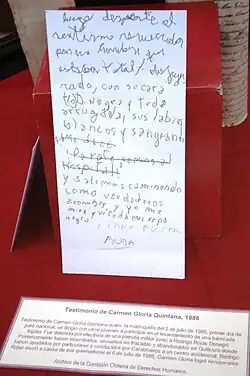 luego desperte al
sentirme
por un hombre que
estaba total/
rado, con su cara
negra y toda
arrugada, sus labios
blancos y sangrantes
Me dice
Hospital
y salimos caminando
como verdaderos
y yo me
mire y vi todo mi cuerpo
negro
AYUDA
Testimonio de Carmen Gloria Quintana, 1986
Testimonio de Carmen Gloria Quintana quien, la madrugada del 2 de julio de 1986, primer día de
paro nacional, se dirigió con otros jóvenes a participar en el levantamiento de una barricada
fogata. Fue detenida por efectivos de una patrulla militar junto a Rodrigo Rojas Denegri.
Posteriormente fueron quemados, envueltos en frazadas y abandonados en Quilicura donde
fueron ayudados por pobladores y conducidos por Carabineros a un centro asistencial. Rodrigo
Rojas murió a causa de sus quemaduras el 6 de julio de 1986, Carmen Gloria logró recuperarse.
Archivo de la Comisión Chilena de Derechos Humanos.